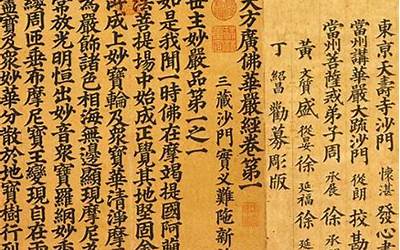 東京天壽寺沙門 懷湛 發心書
當州講華嚴大疏沙門 從朗 校勘
當州菩薩戒弟子 周 承展 徐
黃 文 盛 從 徐 延福 徐
丁 紹昌 勸募彫版
大方廣佛華嚴經卷第一
三藏沙門實叉難陁新
世主妙嚴品第一之一
如是我聞一時佛在摩竭提國阿蘭
法菩提場中始成正覺其地堅固
所成上妙寶輪及衆寶華清淨摩
為嚴飾諸色相海無邊顯現摩尼
常放光明恒出妙音衆寶羅網妙香
纓周匝垂布摩尼寶王變現自在
盡寶及衆妙華分散於地寶樹行列